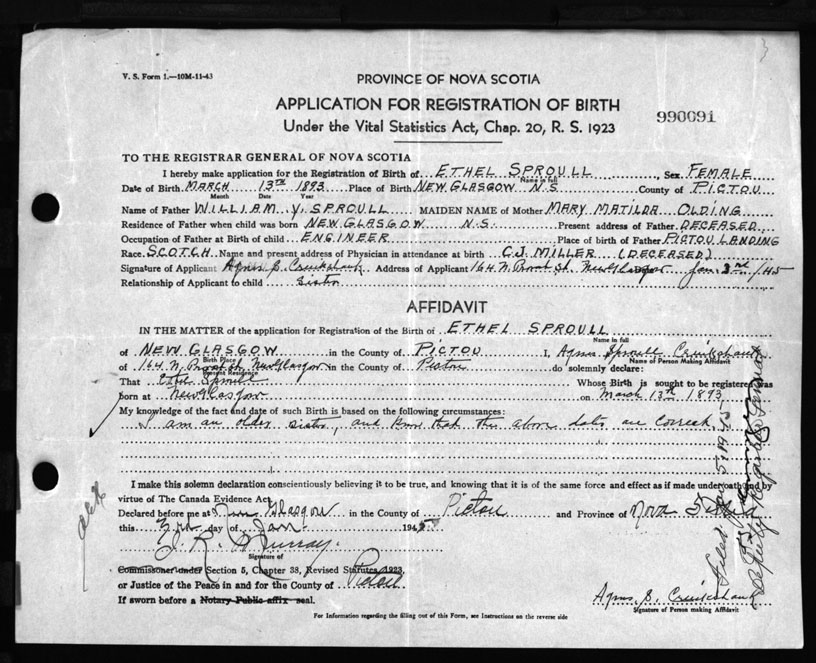 V. S. Form 1.—10M-11-43
PROVINCE OF NOVA SCOTIA
APPLICATION FOR REGISTRATION OF BIRTH
990091
Under the Vital Statistics Act, Chap. 20, R. S. 1923
TO THE REGISTRAR GENERAL OF NOVA SCOTIA
I hereby make application for the Registration of Birth of ETHEL SPROULL Sex FEMALE
Name in full
Date of Birth MARCH 13TH 1893 Place of Birth NEW GLASGOW N.S. County of PICTOU
Month Date Year
Name of Father WILLIAM Y. SPROULL MAIDEN NAME of Mother MARY MATILDA OLDING
Residence of Father when child was born NEW GLASGOW N.S. Present address of Father DECEASED
Occupation of Father at Birth of child ENGINEER Place of birth of Father PICTOU LANDING
Race SCOTCH Name and present address of Physician in attendance at birth C.J. MILLER (DECEASED)
Signature of Applicant Agnes S. Cruikshank Address of Applicant 164 N. Provost St. New Glasgow Jan. 3rd /45
Relationship of Applicant to child Sister
AFFIDAVIT
IN THE MATTER of the application for Registration of the Birth of ETHEL SPROULL
Name in full
of NEW GLASGOW in the County of PICTOU I, Agnes Sproull Cruikshank
Birth Place Name of Person Making Affidavit
of 164 N. Provost St. New Glasgow in the County of Pictou do solemnly declare:
Present Residence
That Ethel Sproull Whose Birth is sought to be registered was
born at New Glasgow on March 13th 1893
My knowledge of the fact and date of such Birth is based on the following circumstances:
I am an older sister, and know that the above dates are correct.
I make this solemn declaration conscientiously believing it to be true, and knowing that it is of the same force and effect as if made under oath and by
virtue of The Canada Evidence Act
Declared before me at New Glasgow in the County of Pictou and Province of Nova Scotia
this 3rd day of Jan 1945
J. R. Murray
Signature of
Commissioner under Section 5, Chapter 38, Revised Statutes 1923,
or Justice of the Peace in and for the County of Pictou
If sworn before a Notary Public affix seal.
Agnes S. Cruikshank
Signature of Person making Affidavit
For Information regarding the filling out of this Form, see Instructions on the reverse side
Deputy Registrar General